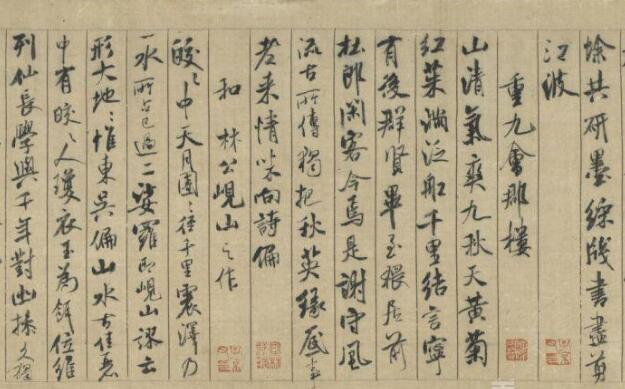 蜍共研墨綵牋書盡剪
江波
重九會郡樓
山清氣爽九秋天黃菊
紅茱滿泛船千里結言寧
有後群賢畢至猥居前
杜郎閑客今焉是謝守風
流古所傳獨把秋英緣底事
老來情味向詩偏
和林公峴山之作
皎〻中天月團〻徑千里震澤乃
一水所占已過二娑羅即峴山謬云
形大地〻惟東吳偏山水古佳麗
中有皎〻人瓊衣玉為餌位維
列仙長學與千年對幽操久獨